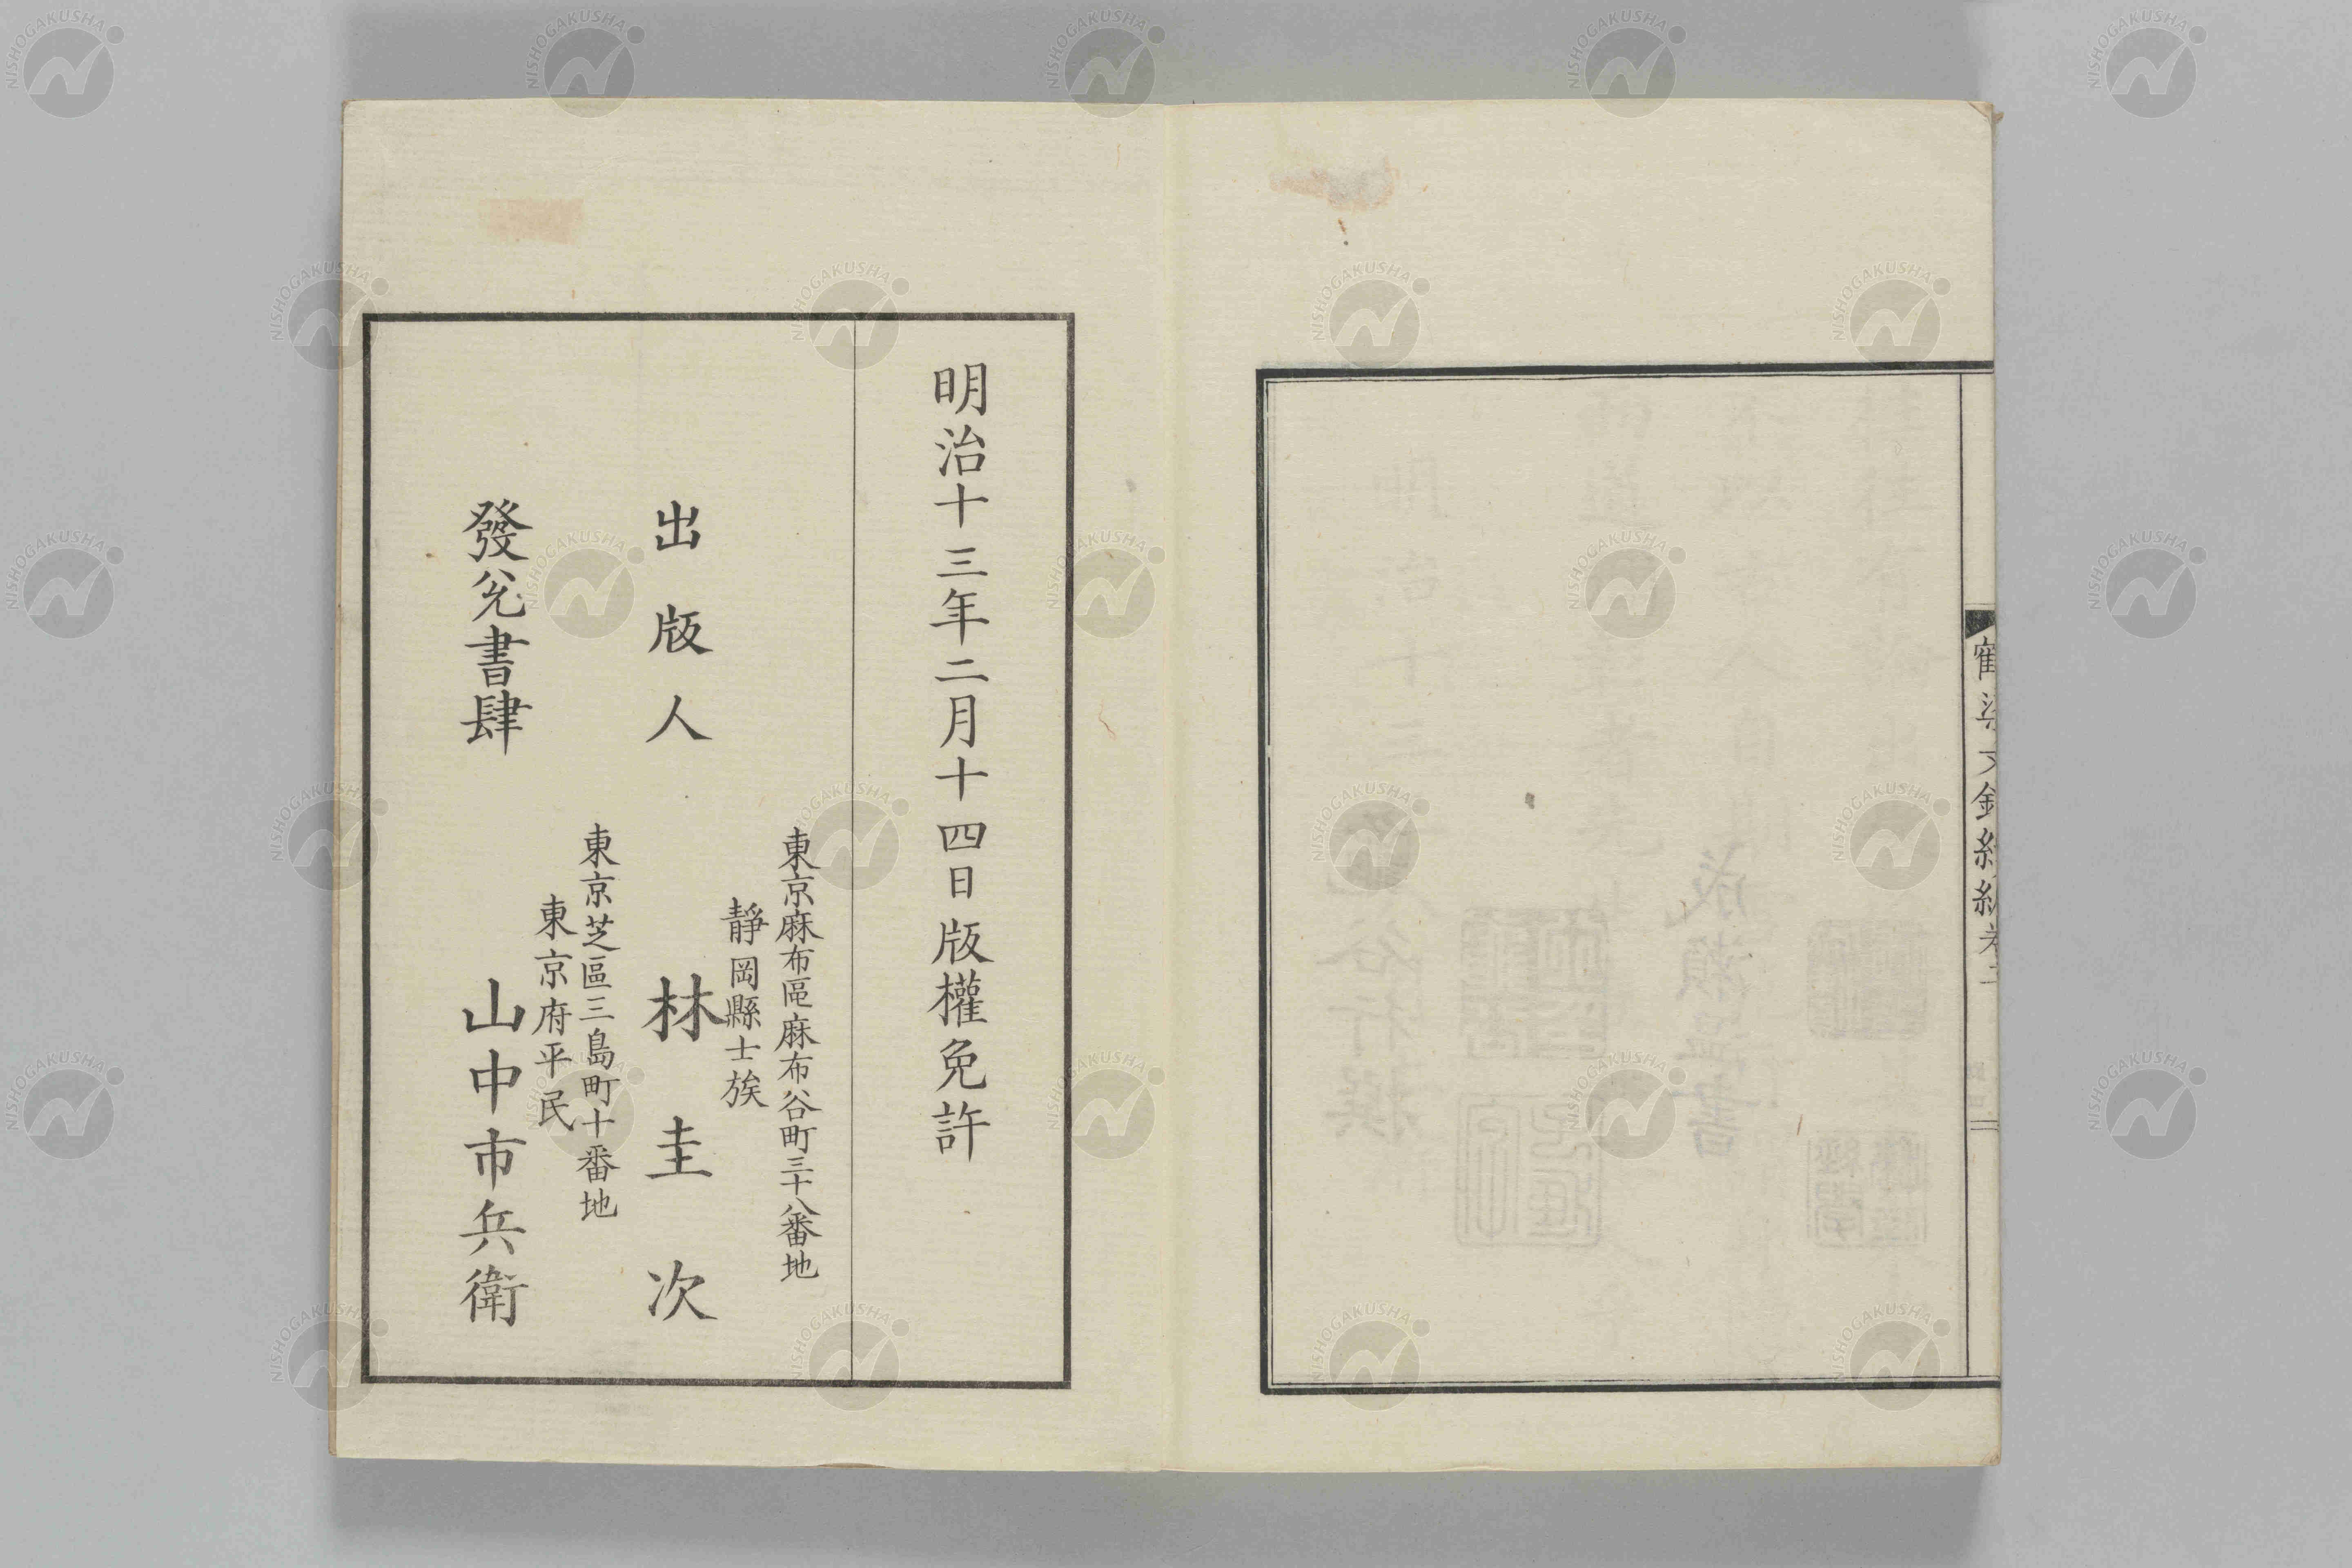 明治十三年二月十四日版權免許
東京麻布區麻布谷町三十八番地
靜岡縣士族
出版人 林圭次
東京芝區三島町十番地
東京府平民
發兌書肆 山中市兵衛
NISHOGAKUSHA